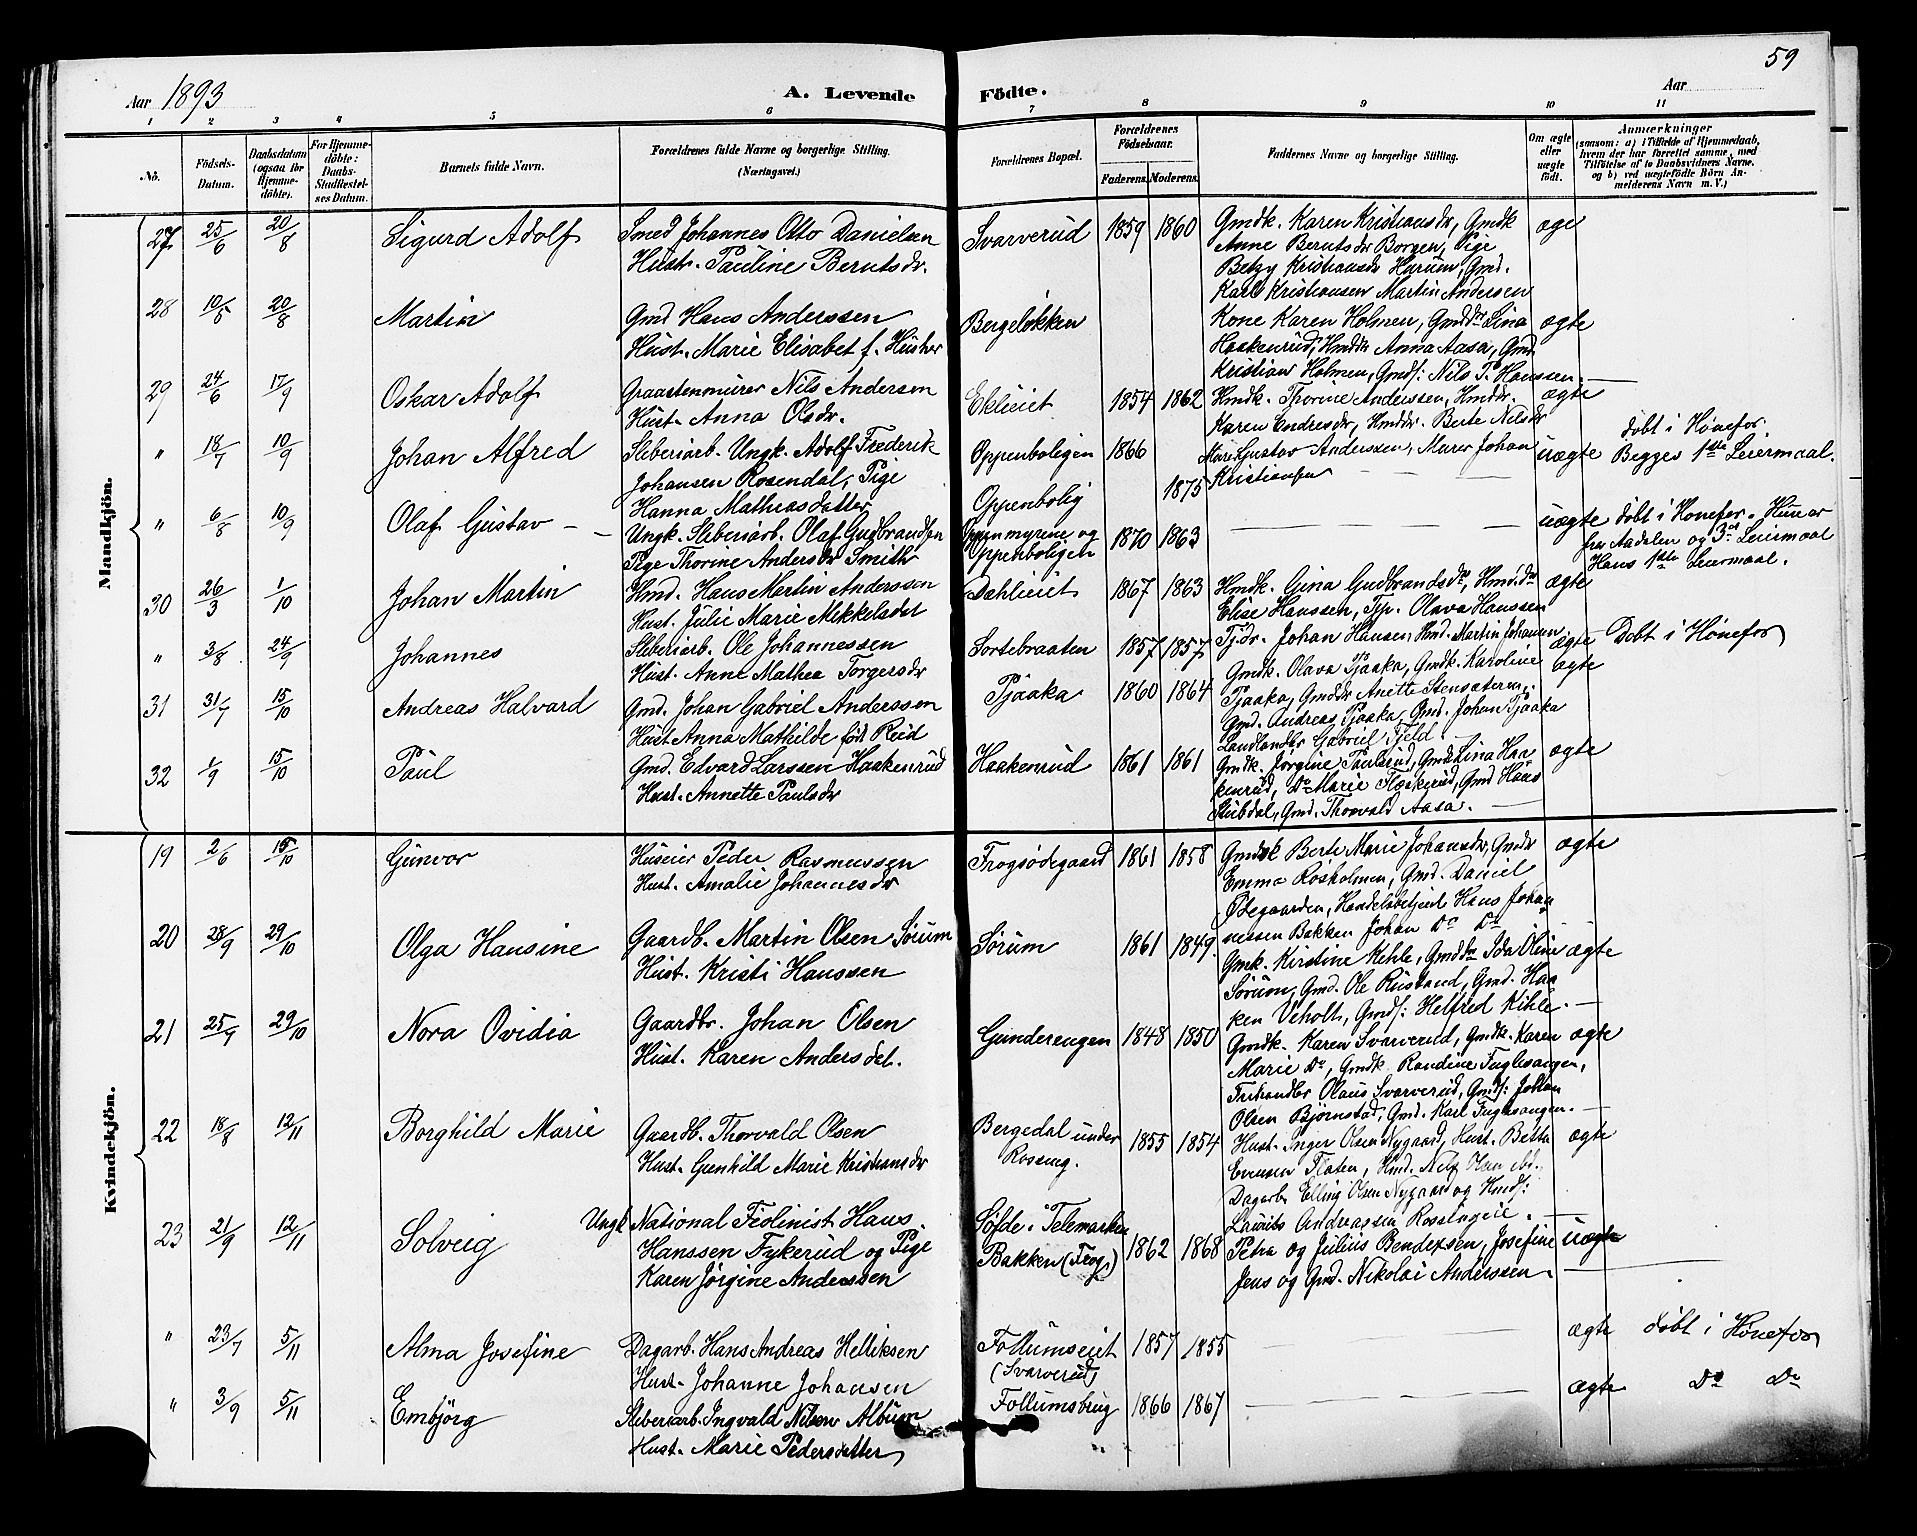 59
Aar 1893
A. Levende Födte.
Aar
1 2 3 4 5 6 7 8 9 10 11
No.
Födsels-Datum.
Daabsdatum (ogsaa for Hjemmedöbte).
For Hjemmedöbte: Daabs-Stadfæstelses Datum.
Barnets fulde Navn.
Forældrenes fulde Navne og borgerlige Stilling.
(Næringsvei.)
Forældrenes Bopæl.
Forældrenes Födselsaar.
Faderens. Moderens.
Faddernes Navne og borgerlige Stilling.
Om ægte eller uægte födt.
Anmærkninger
(saasom: a) i Tilfælde af Hjemmedaab, hvem der har forrettet samme, med Tilföielse af to Daabsvidners Navne. og b) ved uægtefödte Börn Anmelderens Navn m. V.)
Mandkjön.
27 25/6 20/8 Sigurd Adolf
Smed Johannes Otto Danielsen
Hustr. Pauline Berntsdr.
Svarverud 1859 1860
Gmdk. Karen Kristiansdr, Gmdk
Anne Berntsdr Borgen, Pige
Betzy Kristiansdr Harum, Gmd.
Karl Kristiansen Martin Anderssen
ægte
28 10/5 20/8 Martin
Gmd Hans Anderssen
Hust. Marie Elisabet f. Husher
Bergeløkken
Kone Karen Holmen, Gmddr Lina
Haakenrud, Hmddr Anna Aasa, Gmd
Kristian Holmen, Gmds: Nils P. Hanssen.
ægte
29 24/6 17/9 Oskar Adolf
Graastenmurer Nils Andersen
Hust. Anna Olsdr.
Eklieiet 1854 1862
Hmdk. Thorine Anderssen, Hmddr.
Karen Endresdr, Hmddr. Berte Nilsdr
ægte
" 18/7 10/9 Johan Alfred
Sliberiarb. Ungk. Adolf Frederik
Johansen Rosendal, Pige
Hanna Mathiasdatter
Oppenboligen 1866
Oppenbolig 1875
Murer Gustav Anderssen, Murer Johan
Kristiansen
uægte
døbt i Hønefos.
Begges 1ste Leiermaal.
" 6/8 10/9 Olaf Gustav
Ungk. Sliberiarb. Olaf Gudbrandsen
Pige Thorine Andersdr Smith
Oppenmyrene og
Oppenboligen 1870 1863
uægte
døbt i Hønefos. Hun er
fra Aadalen og 3de Leiermaal
Hans 1ste Leiermaal.
30 26/3 1/10 Johan Martin
Hmd. Hans Martin Anderssen
Hust. Julie Marie Mikkelsdet
Dahlieiet 1867 1863
Hmdk. Gina Gudbrandsdr, Hmd.dr
Elise Hanssen, Tjp. Olava Hanssen
ægte
" 3/8 24/9 Johannes
Sliberiarb. Ole Johannessen
Hust. Anne Mathea Torgersdr
Sortebraaten 1857 1857
Tjdr. Johan Hansen, Hmd. Martin Johansen
ægte
Døbt i Hønefos
31 31/7 15/10 Andreas Halvard
Gmd. Johan Gabriel Anderssen
Hust Anna Mathilde født Reid
Pjaaka 1860 1864
Gmdk. Olava Pjaaka, Gmdk. Karoline
Pjaaka, Gmddr Anette Stensæteren,
Gmd. Andreas Pjaaka, Gmd. Johan Pjaaka
Landhandler Gabriel Fjeld.
ægte
32 1/9 15/10 Paul
Gmd. Edvard Larssen Haakenrud
Hust. Annette Paulsdr
Haakenrud 1861 1861
Gmdk. Jørgine Paulsrud, Gmdk Lina Haa-
kenrud, Do Marie Fleskerud, Gmd Hans
Stubdal, Gmd. Thorvald Aasa.
ægte
Kvindekjön.
19 2/6 15/10 Gunvor
Huseier Peder Rasmussen
Hust. Amalie Johannesdr
Frogsødegaard 1861 1858
Gmdsk Berte Marie Johansdr, Gmdr
Emma Rosholmen, Gmd. Daniel
Ødegaarden, Handelsbetjent Hans Johan-
nessen Bakken Johan Do Do
ægte
20 28/9 29/10 Olga Hansine
Gaardb. Martin Olsen Sørum
Hust. Kristi Hanssen
Sørum 1861 1849
Gmk. Kirstine Kehle, Gmddr Ida Oline
Sørum, Gmd. Ole Rustand, Gmd. Haa-
ken Veholt, Gmds: Helfred Kihle.
ægte
21 25/9 29/10 Nora Ovidia
Gaardbr. Johan Olsen
Hust. Karen Andersdet.
Gunderengen 1848 1850
Gmdk. Karen Svarverud, Gmdk. Karen
Marie Do, Gmdk Randine Fuglesangen,
Olaus Svarverud, Gmds: Johan
Olsen Bjørnstad, Gmd. Karl Fuglesangen.
ægte
22 18/8 12/11 Borghild Marie
Gaardb. Thorvald Olsen
Hust. Gunhild Marie Kristiansdr
Bergedal under
Rossing. 1855 1854
Hust. Inger Olsen Nygaard, Hust. Betta
Evensen Flaten, Hmd. Nils Hau ibd.
Dagarb. Elling Olsen Nygaard og Hmds:
Laurits Andreassen Rossingeie.
ægte
23 21/9 12/11 Solveig
Ungk National Fiolinist Hans
Hanssen Fykerud og Pige
Karen Jørgine Anderssen
Søfde i Telemarken
Bakken (Frogs) 1862 1868
Petra og Julius Bendixsen, Josefine
Jens og Gmd. Nikolai Anderssen.
uægte
" 23/7 5/11 Alma Josefine
Dagarb. Hans Andreas Helliksen
Hust. Johanne Johansen
Follumseiet
(Svarverud) 1857 1855
ægte
døbt i Hønefos
" 3/9 5/11 Embjørg
Sliberiarb. Ingvald Nilsen Album
Hust. Marie Pedersdatter
Follumsbrug 1866 1867
ægte
Do Do